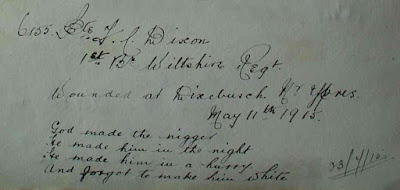 6155. Pte J. C. Dixon
1st Bn Wiltshire Regt.
Wounded at Dixebusch Nr Ypres.
May 11th 1915.
God made the nigger
He made him in the night
He made him in a hurry
And forgot to make him white